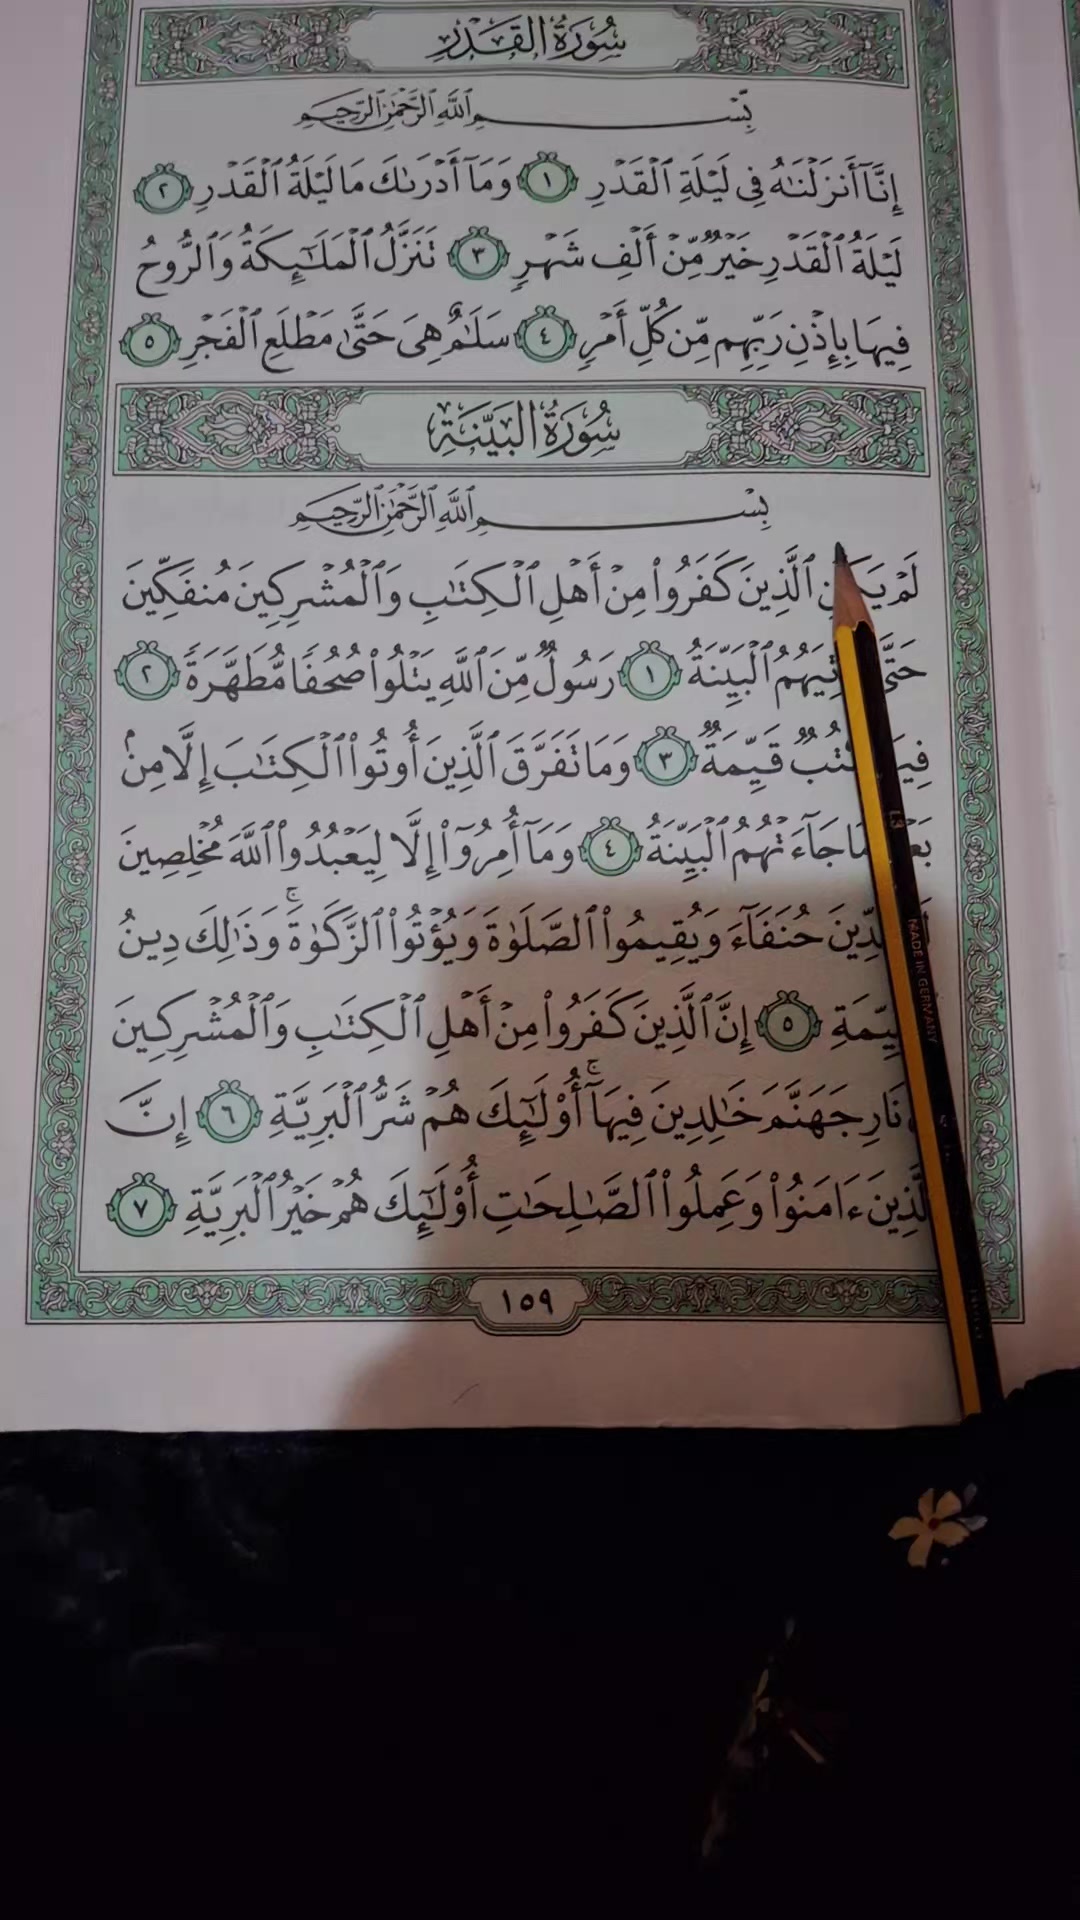 سُورَةُ القَدْرِ
بِسْمِ ٱللَّهِ ٱلرَّحْمَٰنِ ٱلرَّحِيمِ
إِنَّآ أَنزَلْنَٰهُ فِى لَيْلَةِ ٱلْقَدْرِ ١ وَمَآ أَدْرَىٰكَ مَا لَيْلَةُ ٱلْقَدْرِ ٢
لَيْلَةُ ٱلْقَدْرِ خَيْرٌ مِّنْ أَلْفِ شَهْرٍ ٣ تَنَزَّلُ ٱلْمَلَٰٓئِكَةُ وَٱلرُّوحُ
فِيهَا بِإِذْنِ رَبِّهِم مِّن كُلِّ أَمْرٍ ٤ سَلَٰمٌ هِىَ حَتَّىٰ مَطْلَعِ ٱلْفَجْرِ ٥
سُورَةُ البَيِّنَةِ
بِسْمِ ٱللَّهِ ٱلرَّحْمَٰنِ ٱلرَّحِيمِ
لَمْ يَكُنِ ٱلَّذِينَ كَفَرُوا۟ مِنْ أَهْلِ ٱلْكِتَٰبِ وَٱلْمُشْرِكِينَ مُنفَكِّينَ
حَتَّىٰ ٱلْبَيِّنَةُ ١ رَسُولٌ مِّنَ ٱللَّهِ يَتْلُوا۟ صُحُفًا مُّطَهَّرَةً ٢
كُتُبٌ قَيِّمَةٌ ٣ وَمَا تَفَرَّقَ ٱلَّذِينَ أُوتُوا۟ ٱلْكِتَٰبَ إِلَّا مِنۢ
مَا جَآءَتْهُمُ ٱلْبَيِّنَةُ ٤ وَمَآ أُمِرُوٓا۟ إِلَّا لِيَعْبُدُوا۟ ٱللَّهَ مُخْلِصِينَ
ٱلدِّينَ حُنَفَآءَ وَيُقِيمُوا۟ ٱلصَّلَوٰةَ وَيُؤْتُوا۟ ٱلزَّكَوٰةَ ۚ وَذَٰلِكَ دِينُ
ٱلْقَيِّمَةِ ٥ إِنَّ ٱلَّذِينَ كَفَرُوا۟ مِنْ أَهْلِ ٱلْكِتَٰبِ وَٱلْمُشْرِكِينَ
نَارِ جَهَنَّمَ خَٰلِدِينَ فِيهَآ ۚ أُو۟لَٰٓئِكَ هُمْ شَرُّ ٱلْبَرِيَّةِ ٦ إِنَّ
ٱلَّذِينَ ءَامَنُوا۟ وَعَمِلُوا۟ ٱلصَّٰلِحَٰتِ أُو۟لَٰٓئِكَ هُمْ خَيْرُ ٱلْبَرِيَّةِ ٧
١٥٩
MADE IN GERMANY